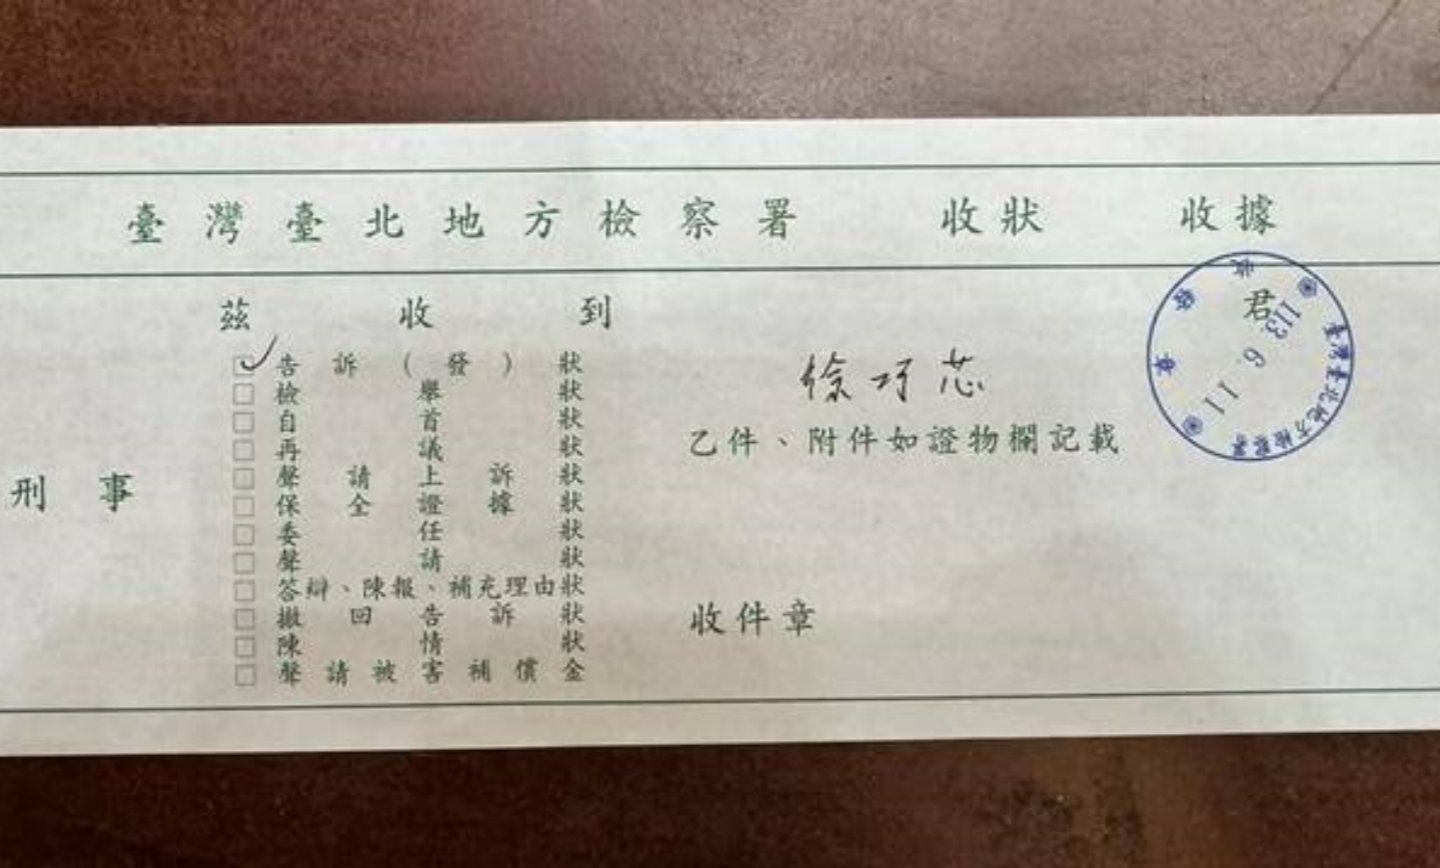 臺灣臺北地方檢察署 收狀 收據
茲收到
君
徐巧芯
乙件、附件如證物欄記載
刑事
□告訴(發)狀
□檢舉狀
□自首狀
□再議狀
□聲請上訴狀
□保全證據狀
□委任狀
□聲請狀
□答辯、陳報、補充理由狀
□撤回告訴狀
□陳情狀
□聲請被害補償金
收件章
臺灣臺北地方檢察署
113 6 11
收狀章